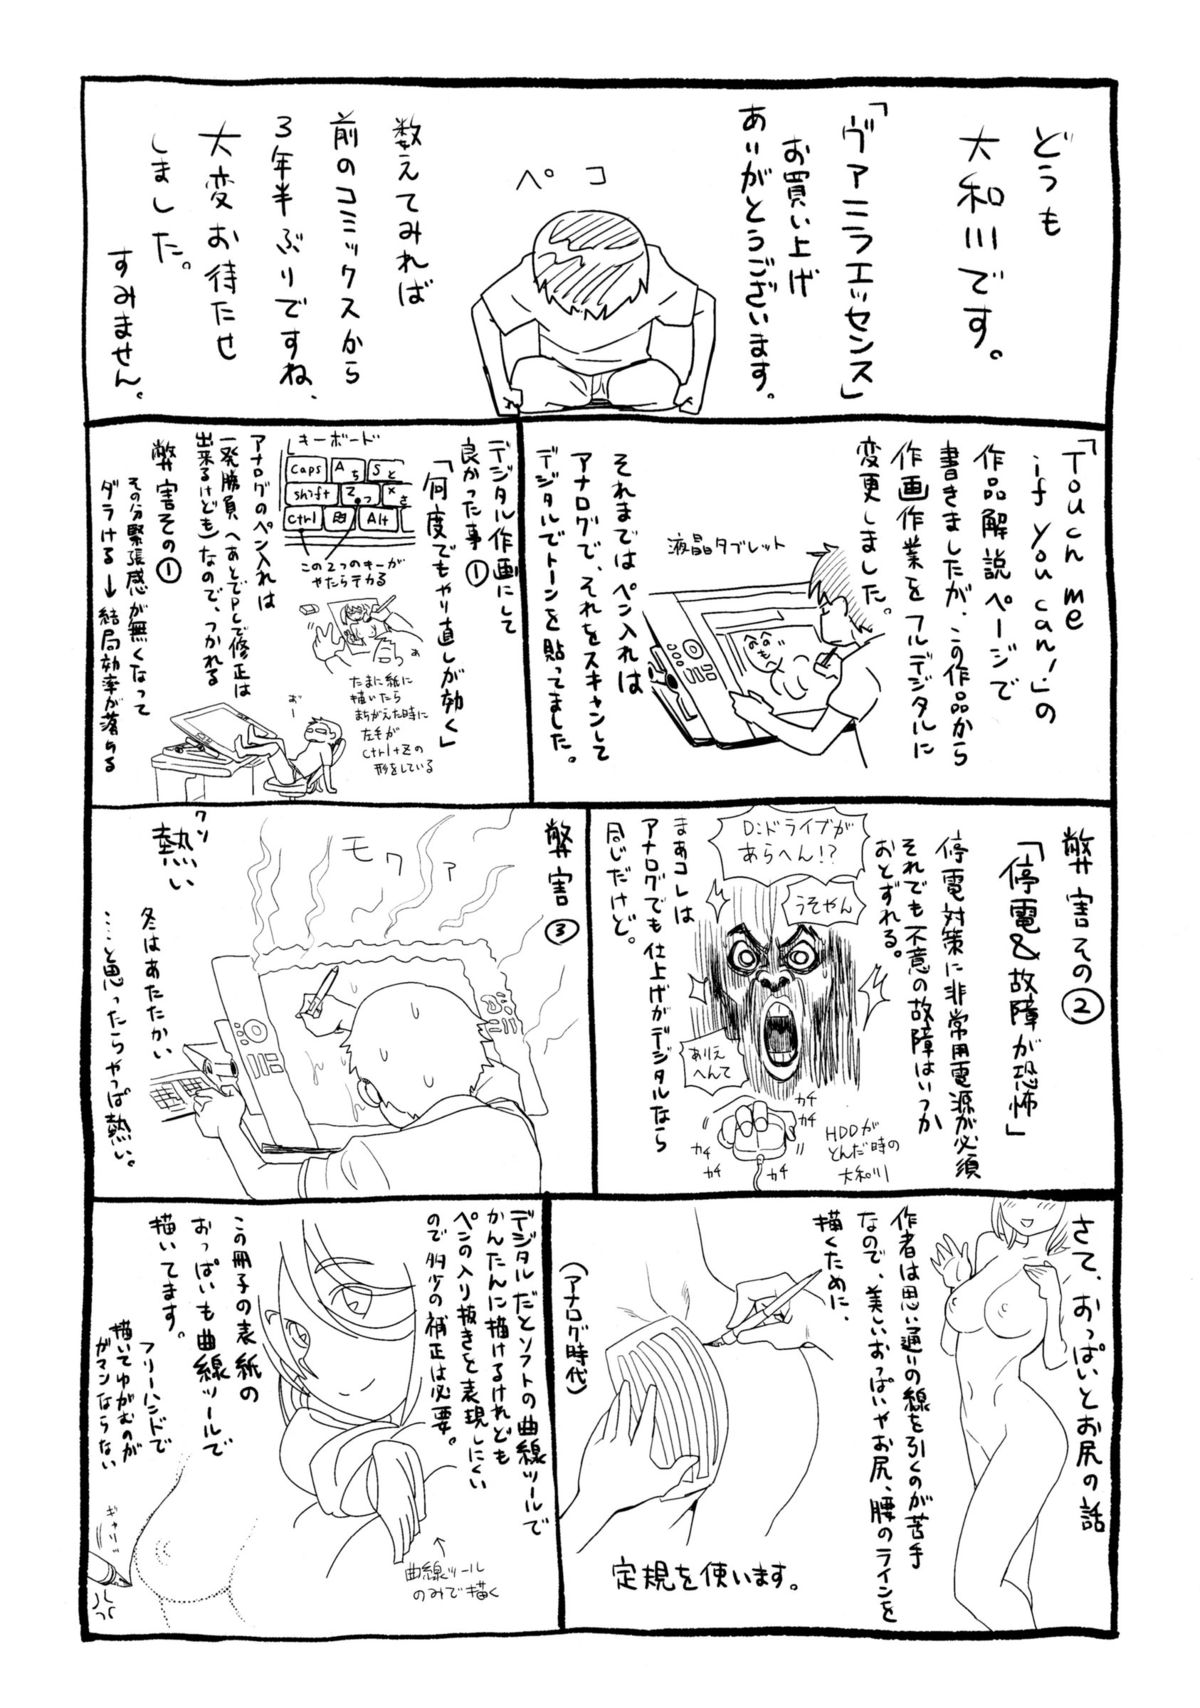 どうも
大和川です。
「ヴァニラエッセンス」
お買い上げ
ありがとうございます。
ペコ
数えてみれば
前のコミックスから
3年半ぶりですね、
大変お待たせ
しました。
すみません。
「Touch me
if you can!」の
作品解説ページで
書きましたが、この作品から
作画作業をフルデジタルに
変更しました。
液晶タブレット
それまではペン入れは
アナログで、それをスキャンして
デジタルでトーンを貼ってました。
デジタル作画にして
良かった事①
「何度でもやり直しが効く」
キーボード
Caps
Aち
Sと
shift
Zっ
Xさ
Ctrl
Alt
この2つのキーが
やたらテカる
たまに紙に
描いたら
まちがえた時に
左手が
Ctrl+Zの
形をしている
アナログのペン入れは
一発勝負(あとでPCで修正は
出来るけども)なので、つかれる
弊害その①
その分緊張感が無くなって
ダラける→結局効率が落ちる
おー
弊害その②
「停電&故障が恐怖」
停電対策に非常用電源が必須
それでも不意の故障はいつか
おとずれる。
D:ドライブが
あらへん!?
うそやん
ありえ
へんて
カチ
カチ
カチ
カチ
カチ
HDDが
とんだ時の
大和川
まぁコレは
アナログでも仕上げがデジタルなら
同じだけど。
弊害③
モワァ
クソ
熱い
冬はあたたかい
…と思ったらやっぱ熱い。
さて、おっぱいとお尻の話
作者は思い通りの線を引くのが苦手
なので、美しいおっぱいやお尻、腰のラインを
描くために、
(アナログ時代)
定規を使います。
デジタルだとソフトの曲線ツールで
かんたんに描けるけれども
ペンの入り抜きを表現しにくい
ので多少の補正は必要。
この冊子の表紙の
おっぱいも曲線ツールで
描いてます。
フリーハンドで
描いてゆがむのが
ガマンならない
↑
曲線ツール
のみで描く
ギャリッ